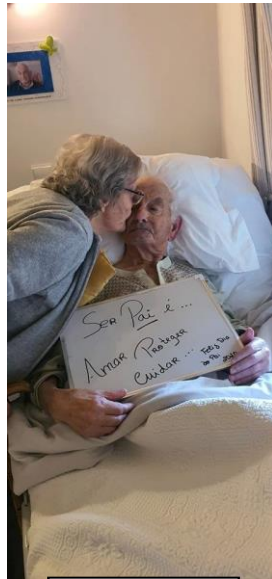 SER PAI é ...
AMAR PROTEGER
Cuidar ... Feliz Dia
do Pai